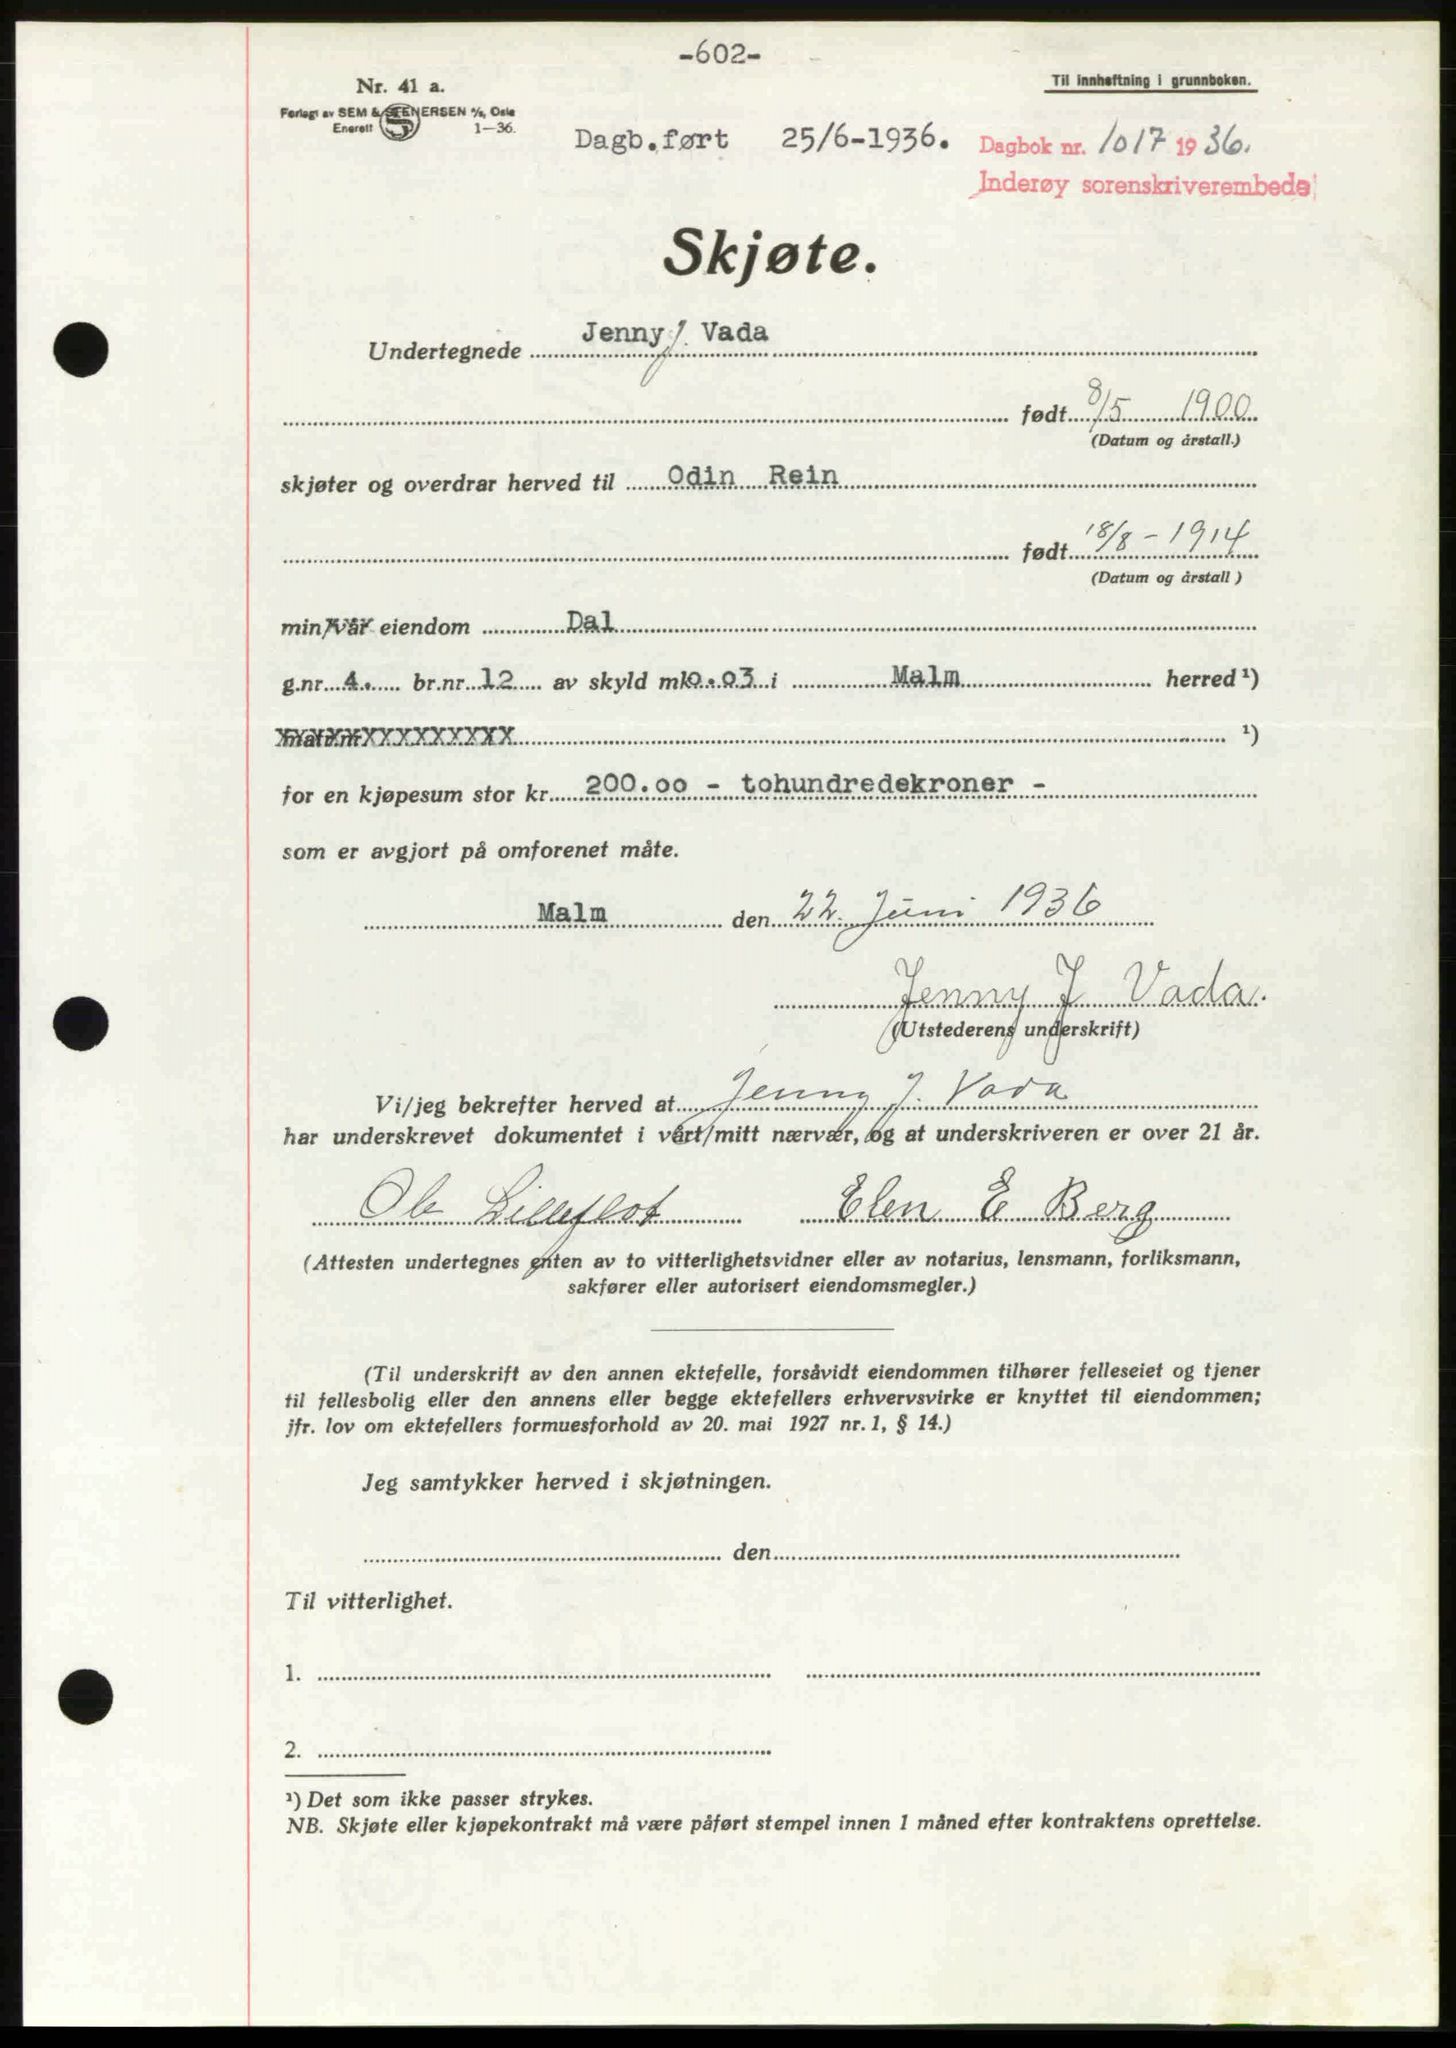 -602-
Nr. 41 a.
Forlagt av SEM & STENERSEN A/S, Oslo
Enerett 1—36.
Til innheftning i grunnboken.
Dagb.ført 25/6-1936.
Dagbok nr. 1017 1936.
Inderøy sorenskriverembede
Skjøte.
Undertegnede Jenny J. Vada
født 8/5 1900
(Datum og årstall.)
skjøter og overdrar herved til Odin Rein
født 18/8 - 1914
(Datum og årstall)
min/vår eiendom Dal
g.nr. 4. br.nr. 12 av skyld mk 0.03 i Malm herred ¹)
matr.nr XXXXXXXXX ¹)
for en kjøpesum stor kr. 200.oo - tohundredekroner -
som er avgjort på omforenet måte.
Malm den 22. Juni 1936
Jenny J Vada.
(Utstederens underskrift)
Vi/jeg bekrefter herved at Jenny J. Vada
har underskrevet dokumentet i vårt/mitt nærvær, og at underskriveren er over 21 år.
Ole Lilleflot Elen E Berg
(Attesten undertegnes enten av to vitterlighetsvidner eller av notarius, lensmann, forliksmann,
sakfører eller autorisert eiendomsmegler.)
(Til underskrift av den annen ektefelle, forsåvidt eiendommen tilhører felleseiet og tjener
til fellesbolig eller den annens eller begge ektefellers erhvervsvirke er knyttet til eiendommen;
jfr. lov om ektefellers formuesforhold av 20. mai 1927 nr. 1, § 14.)
Jeg samtykker herved i skjøtningen.
den
Til vitterlighet.
1.
2.
¹) Det som ikke passer strykes.
NB. Skjøte eller kjøpekontrakt må være påført stempel innen 1 måned efter kontraktens oprettelse.